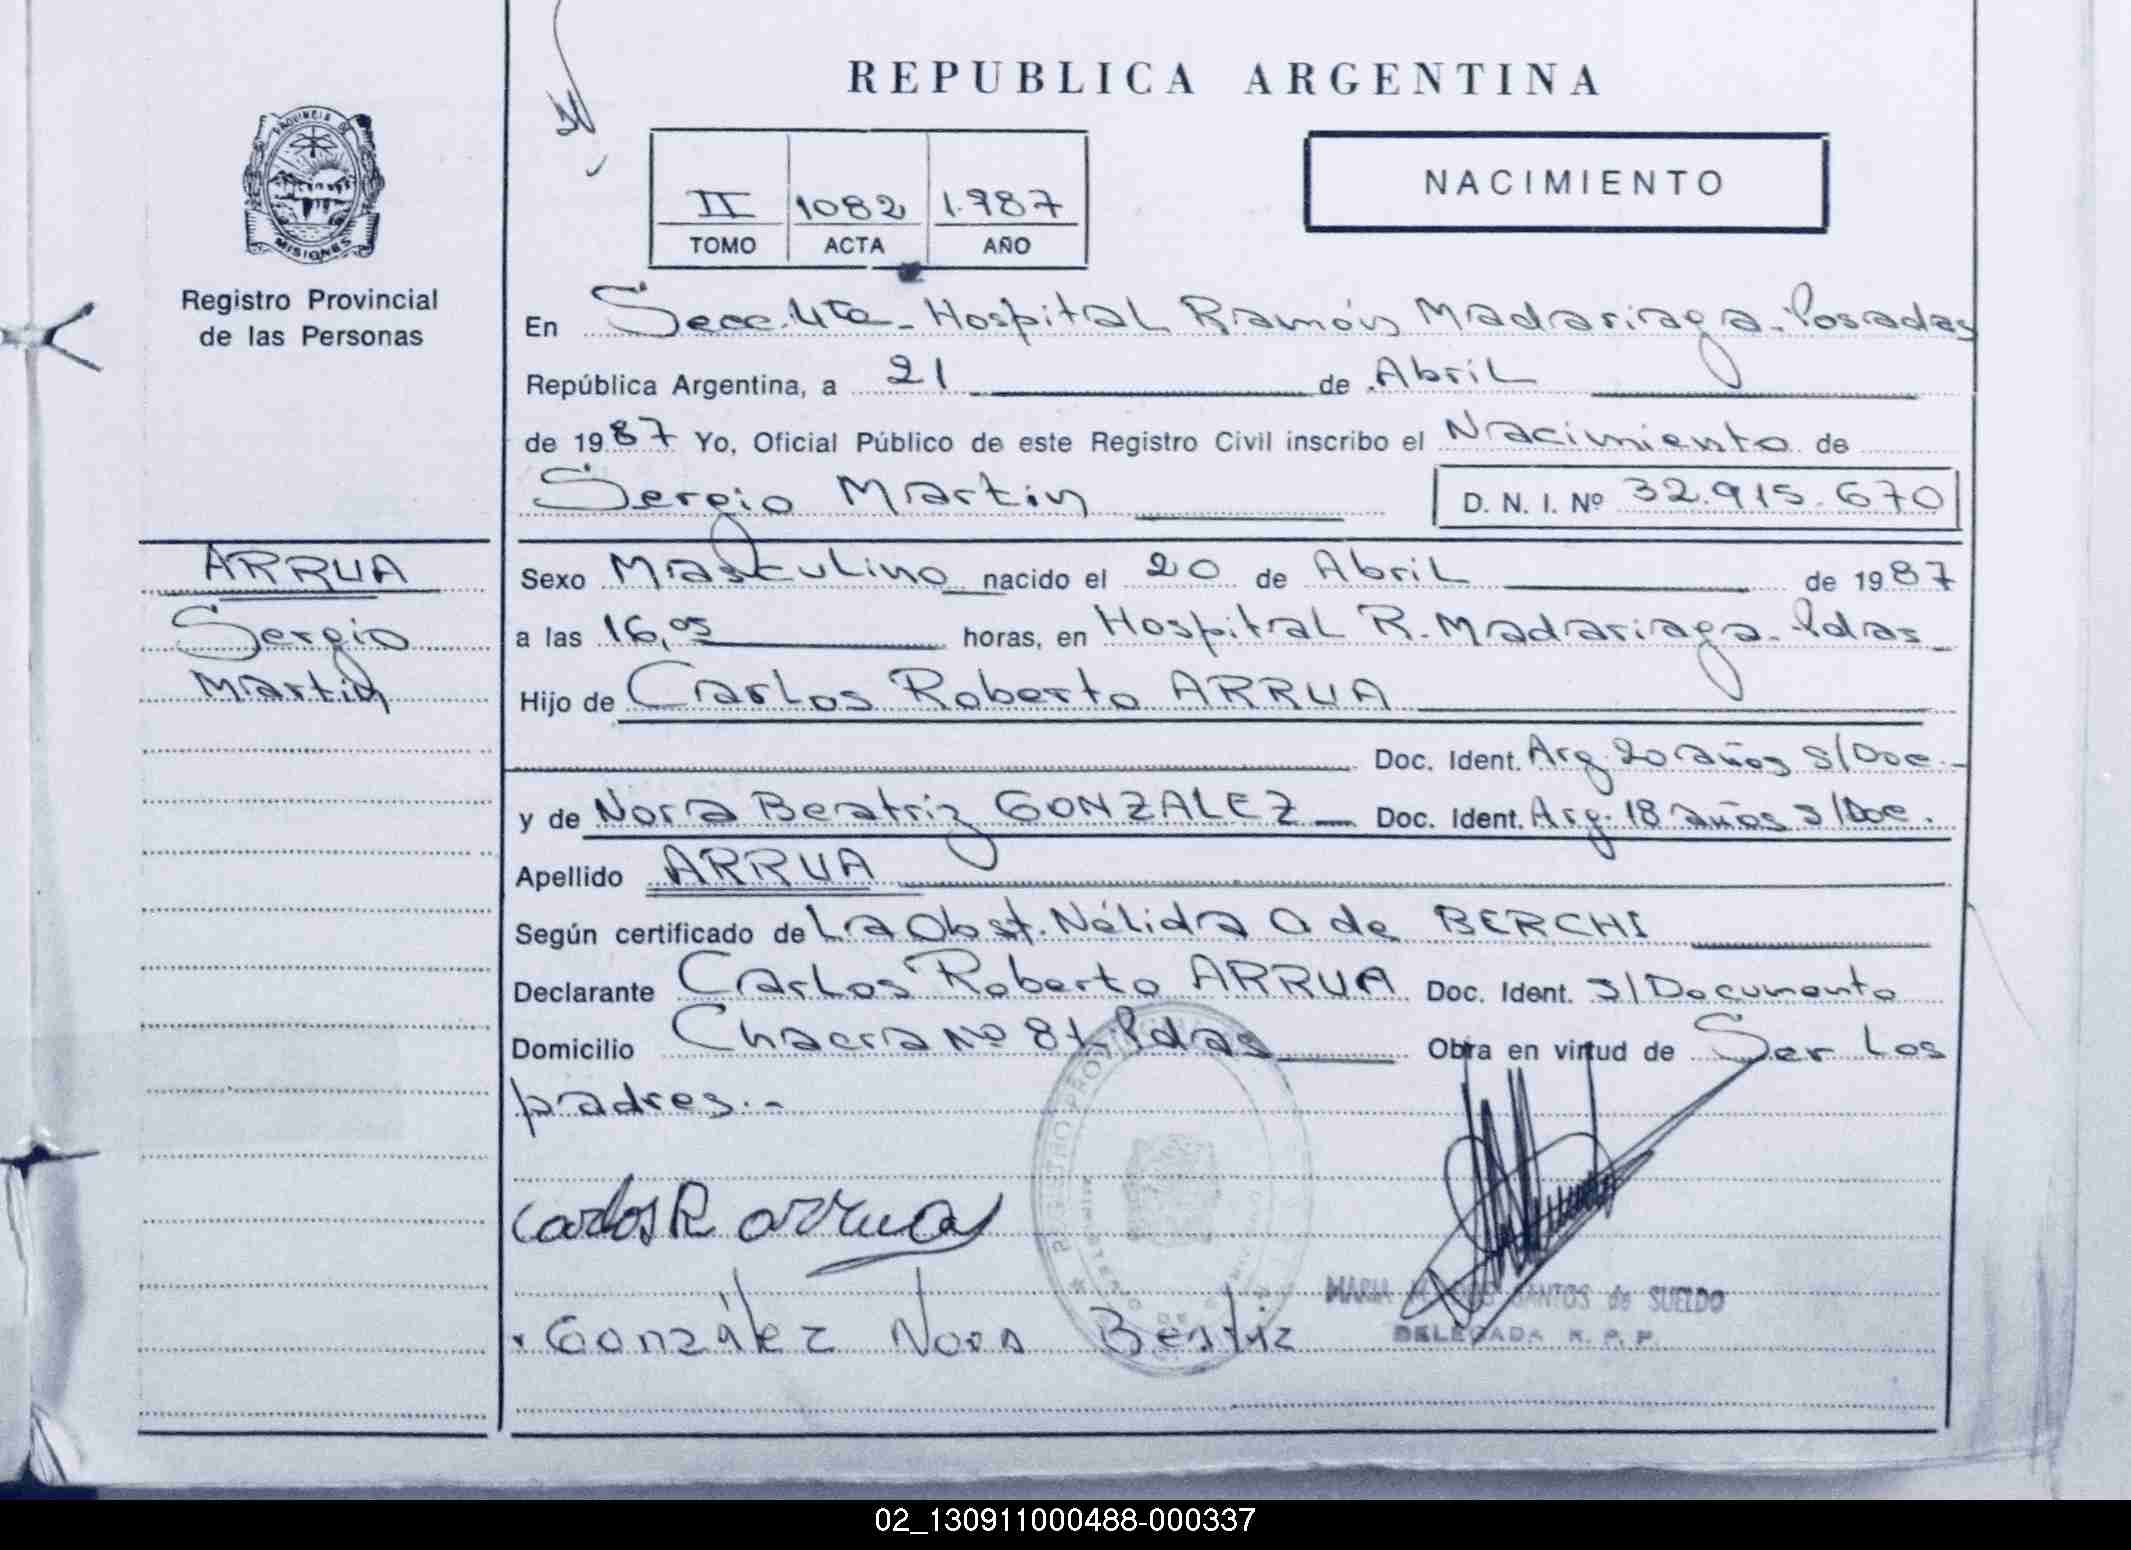 REPUBLICA ARGENTINA
NACIMIENTO
II 1082 1.987
TOMO ACTA AÑO
PROVINCIA DE MISIONES
Registro Provincial
de las Personas
ARRUA
Sergio
Martin
En Secc. 4ta - Hospital Ramón Madariaga - Posadas
República Argentina, a 21 de Abril
de 1987 Yo, Oficial Público de este Registro Civil inscribo el Nacimiento de
Sergio Martin D. N. I. Nº 32.915.670
Sexo Masculino nacido el 20 de Abril de 1987
a las 16,05 horas, en Hospital R. Madariaga - Pdas
Hijo de Carlos Roberto ARRUA
Doc. Ident. Arg. 20 años S/Doc. -
y de Nora Beatriz GONZALEZ Doc. Ident. Arg. 18 años S/Doc.
Apellido ARRUA
Según certificado de La Obst. Nélida O de BERCHI
Declarante Carlos Roberto ARRUA Doc. Ident. S/Documento
Domicilio Chacra Nº Pdas Obra en virtud de Ser Los
padres. -
Carlos R arrua
González Nora Beatriz
MARIA SANTOS de SUELDO
DELEGADA R. P. P.
02_130911000488-000337